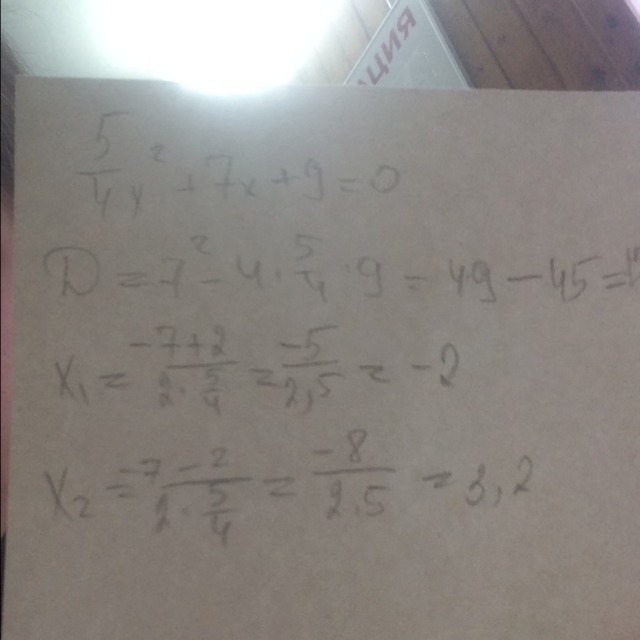 ЦИЯ
5/4 x² + 7x + 9 = 0
D = 7² - 4 · 5/4 · 9 = 49 - 45 = 4
x₁ = (-7 + 2)/(2 · 5/4) = -5/2,5 = -2
x₂ = (-7 - 2)/(2 · 5/4) = -8/2.5 = 3,2